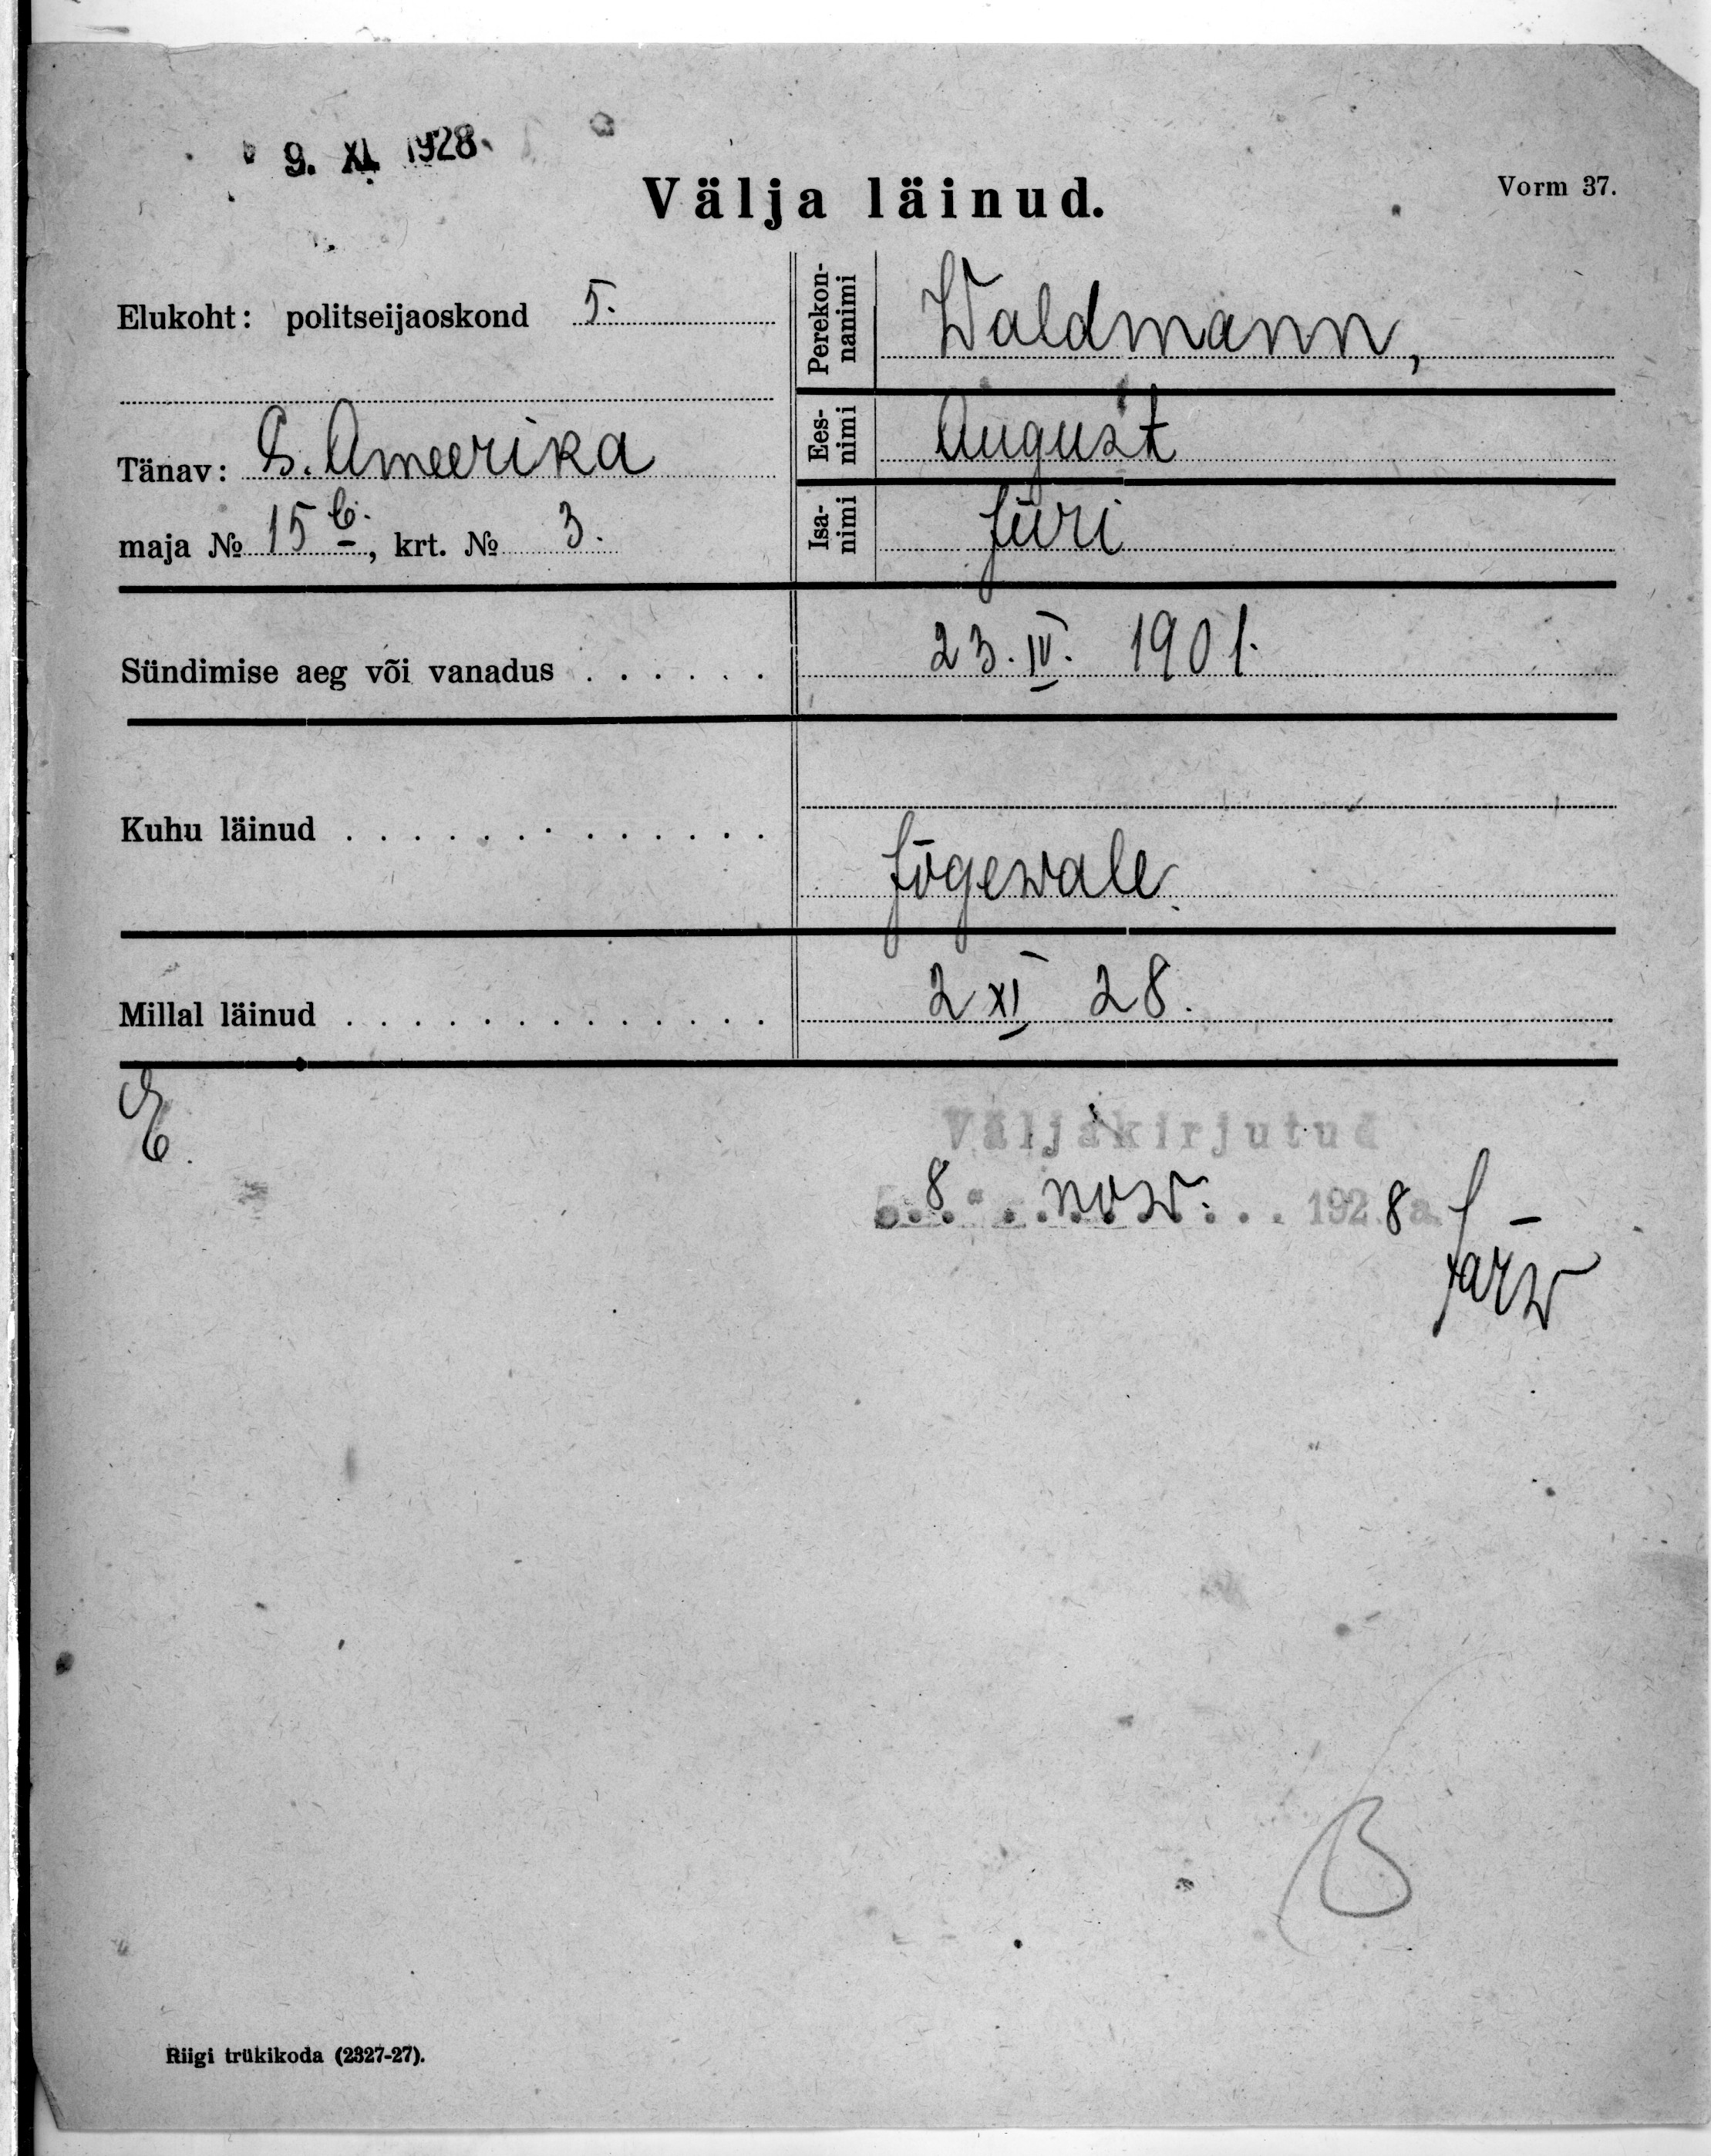 9. XI 1928
Välja läinud.
Vorm 37.
Elukoht: politseijaoskond 5.
Tänav: S. Ameerika
maja № 15 b., krt. № 3.
Perekon-
nanimi
Waldmann,
Ees-
nimi
August
Isa-
nimi
Jüri
Sündimise aeg või vanadus . . . . . . 23. IV. 1901.
Kuhu läinud . . . . . . . . . . . . . Jõgewale.
Millal läinud . . . . . . . . . . . . . 2 XI 28.
E.
Väljakirjutud
8. now. 1928 a.
Järw
B
Riigi trükikoda (2327-27).